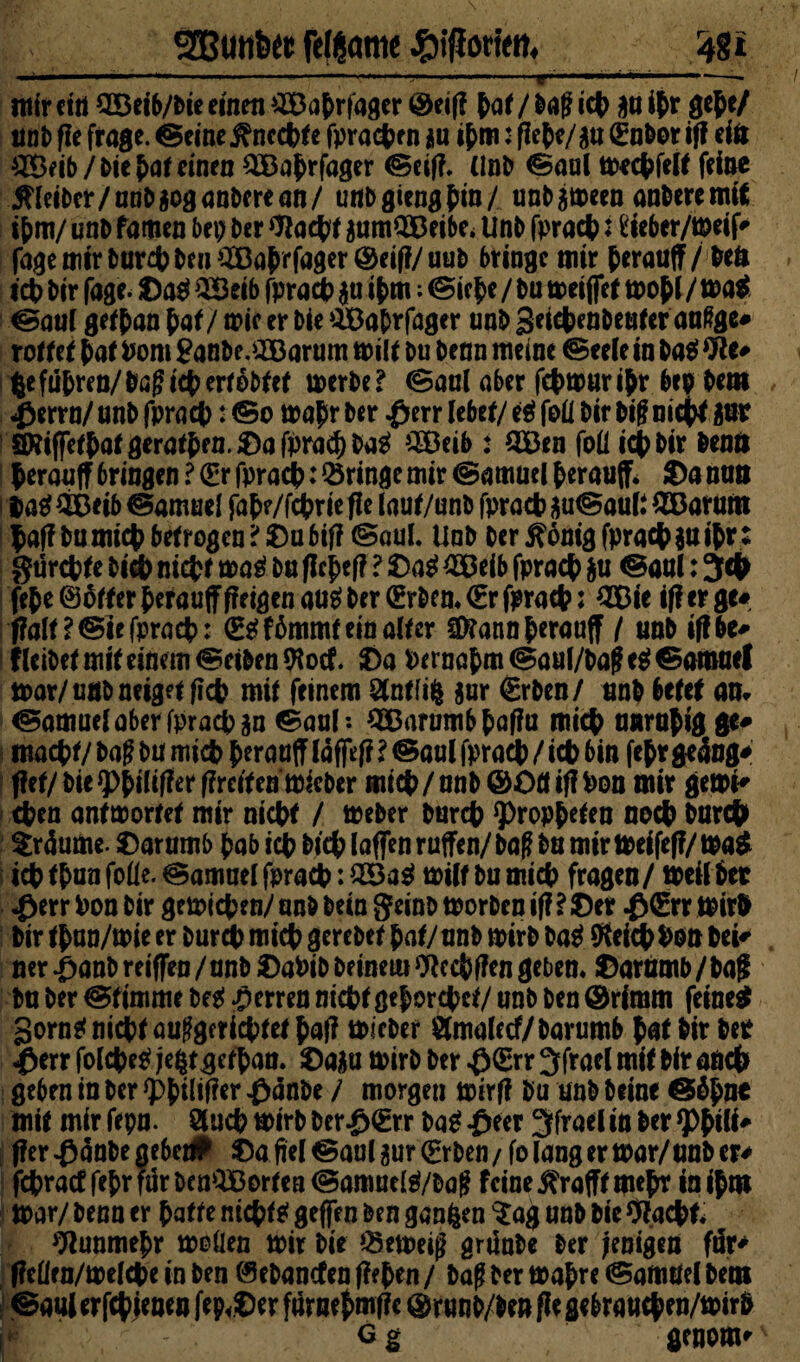 Wunder seltzame Historien. 481
mir ein Weib/die einen Wahrsager Geist hat / daß ich zu ihr gehe/
und sie frage. Seine Knechte sprachen zu ihm: siehe/ zu Endor ist ein
Weib / die hat einen Wahrsager Geist. Und Saul wechselt seine
Kleider / und zog andere an / und gieng hin / und zween andere mit
ihm/ und kamen bey der Nacht zum Weibe. Und sprach: Lieber/weis-
sage mir durch den Wahrsager Geist/ uud bringe mir herauff / den
ich dir sage. Das Weib sprach zu ihm: Siehe / du weissest wohl / was
Saul gethan hat / wie er die Wahrsager und Zeichendeuter außge-
rottet hat vom Lande. Warum wilt du denn meine Seele in das Ne-
tze führen/ daß ich ertödtet werde? Saul aber schwur ihr bey dem
Herrn/ und sprach: So wahr der Herr lebet/ es soll dir diß nicht zur
Missethat gerathen. Da sprach das Weib: Wen soll ich dir denn
herauff bringen? Er sprach: Bringe mir Samuel herauff. Da nun
das Weib Samuel sahe/schrie sie laut/und sprach zu Saul: Warum
hast du mich betrogen? Du bist Saul. Und der König sprach zu ihr:
Fürchte dich nicht was du siehest? Das Weib sprach zu Saul: Ich
sehe Götter herauff steigen aus der Erden. Er sprach: Wie ist er ge-
stalt? Sie sprach: Es kömmt ein alter Mann herauff / und ist be-
kleidet mit einem Seiden Rock. Da vernahm Saul/daß es Samuel
war/ und neiget sich mit seinem Antlitz zur Erden/ und betet an.
Samuel aber sprach zn Saul: Warumb hastu mich unruhig ge-
macht/ daß du mich herauff lässest? Saul sprach / ich bin sehr geäng-
stet/ die Philister streiten wieder mich / und GOtt ist von mir gewi-
chen antwortet mir nicht / weder durch Propheten noch durch
Träume. Darumb hab ich dich lassen ruffen/ daß du mir weisest/ was
ich thun solle. Samuel sprach: Was wilt du mich fragen/ weil der
Herr von dir gewichen/ und dein Feind worden ist? Der HErr wird
dir thun/wie er durch mich geredet hat/ und wird das Reich von dei-
ner Hand reissen / und David deinem Nechsten geben. Darumb / daß
du der Stimme des Herren nicht gehorchet/ und den Grimm seines
Zorns nicht außgerichtet hast wieder Amaleck/ darumb hat dir der
Herr solches jetzt gethan. Dazu wird der HErr Israel mit dir auch
geben in der Philister Hände / morgen wirst du und deine Söhne
mit mir seyn. Auch wird der HErr das Heer Israel in der Phili-
ster Hände geben. Da fiel Saul zur Erden / so lang er war/ und er-
schrack sehr für den Worten Samuels/daß keine Krafft mehr in ihm
war/ denn er hatte nichts gessen den gantzen Tag und die Nacht.
Nunmehr wollen wir die Beweiß gründe der jenigen für-
stellen/welche in den Gedancken stehen / daß der wahre Samuel dem
Saul erschienen sey. Der fürnehmste Grund/den sie gebrauchen/wird
G g genom-